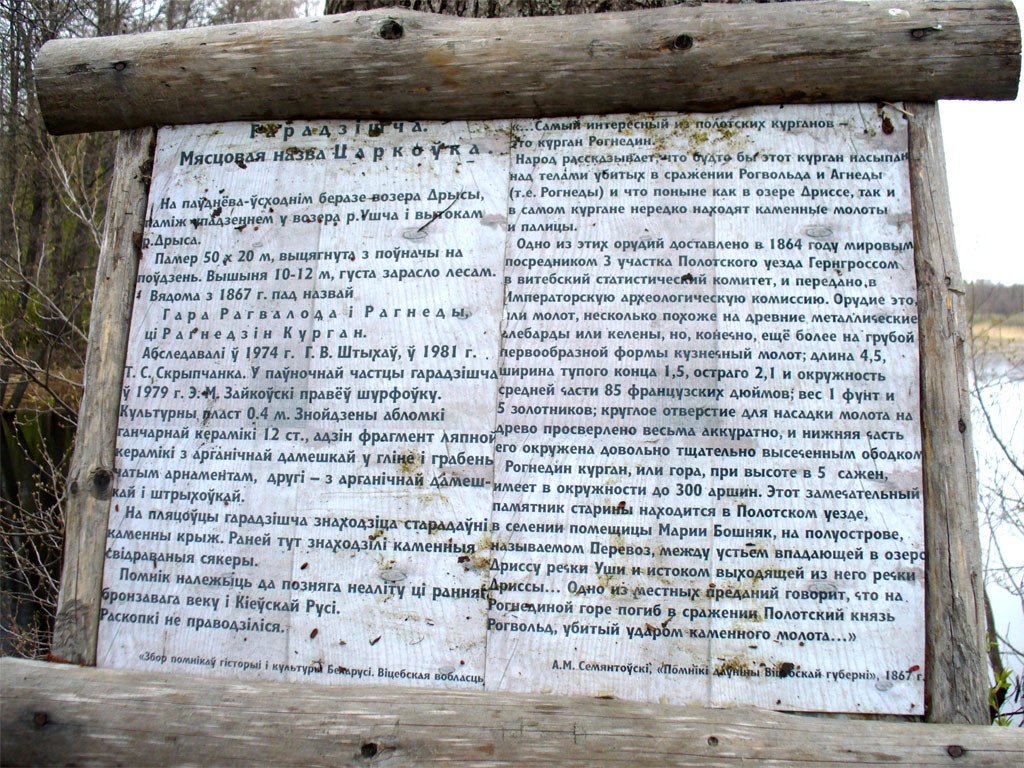 Гарадзішча.
Мясцовая назва Царкоўка
На паўднёва-ўсходнім беразе возера Дрысы,
паміж упадзеннем у возера р.Ушча і вытокам
р.Дрыса.
Памер 50 х 20 м, выцягнута з поўначы на
поўдзень. Вышыня 10-12 м, густа зарасло лесам.
Вядома з 1867 г. пад назвай
Гара Рагвалода і Рагнеды,
ці Рагнедзін Курган.
Абследавалі ў 1974 г. Г. В. Штыхаў, ў 1981 г.
Т. С. Скрыпчанка. У паўночнай частцы гарадзішча
ў 1979 г. Э. М. Зайкоўскі правёў шурфоўку.
Культурны пласт 0.4 м. Знойдзены абломкі
ганчарнай керамікі 12 ст., адзін фрагмент ляпной
керамікі з арганічнай дамешкай у гліне і грабень-
чатым арнаментам, другі – з арганічнай дамеш-
кай і штрыхоўкай.
На пляцоўцы гарадзішча знаходзіца старадаўні
каменны крыж. Раней тут знаходзілі каменныя
свідраваныя сякеры.
Помнік належыць да позняга неаліту ці ранняг
бронзавага веку і Кіеўскай Русі.
Раскопкі не праводзіліся.
«Збор помнікаў гісторыі і культуры Беларусі. Віцебская вобласць
«...Самый интересный из полотских курганов –
это курган Рогнедин.
Народ рассказывает, что будто бы этот курган насыпан
над телами убитых в сражении Рогвольда и Агнеды
(т.е. Рогнеды) и что поныне как в озере Дриссе, так и
в самом кургане нередко находят каменные молоты
и палицы.
Одно из этих орудий доставлено в 1864 году мировым
посредником 3 участка Полотского уезда Гернгроссом
в витебский статистический комитет, и передано в
Императорскую археологическую комиссию. Орудие это,
или молот, несколько похоже на древние металлические
алебарды или келены, но, конечно, ещё более на грубой
первообразной формы кузнечный молот; длина 4,5,
ширина тупого конца 1,5, остраго 2,1 и окружность
средней части 85 французских дюймов; вес 1 фунт и
5 золотников; круглое отверстие для насадки молота на
древо просверлено весьма аккуратно, и нижняя часть
его окружена довольно тщательно высеченным ободком
Рогнедин курган, или гора, при высоте в 5 сажен,
имеет в окружности до 300 аршин. Этот замечательный
памятник старины находится в Полотском уезде,
в селении помещицы Марии Бошняк, на полуострове,
называемом Перевоз, между устьем впадающей в озеро
Дриссу речки Уши и истоком выходящей из него речки
Дриссы... Одно из местных преданий говорит, что на
Рогнединой горе погиб в сражении Полотский князь
Рогвольд, убитый ударом каменного молота...»
А.М. Семянтоўскі, «Помнікі даўніны Віцебскай губерні», 1867 г.